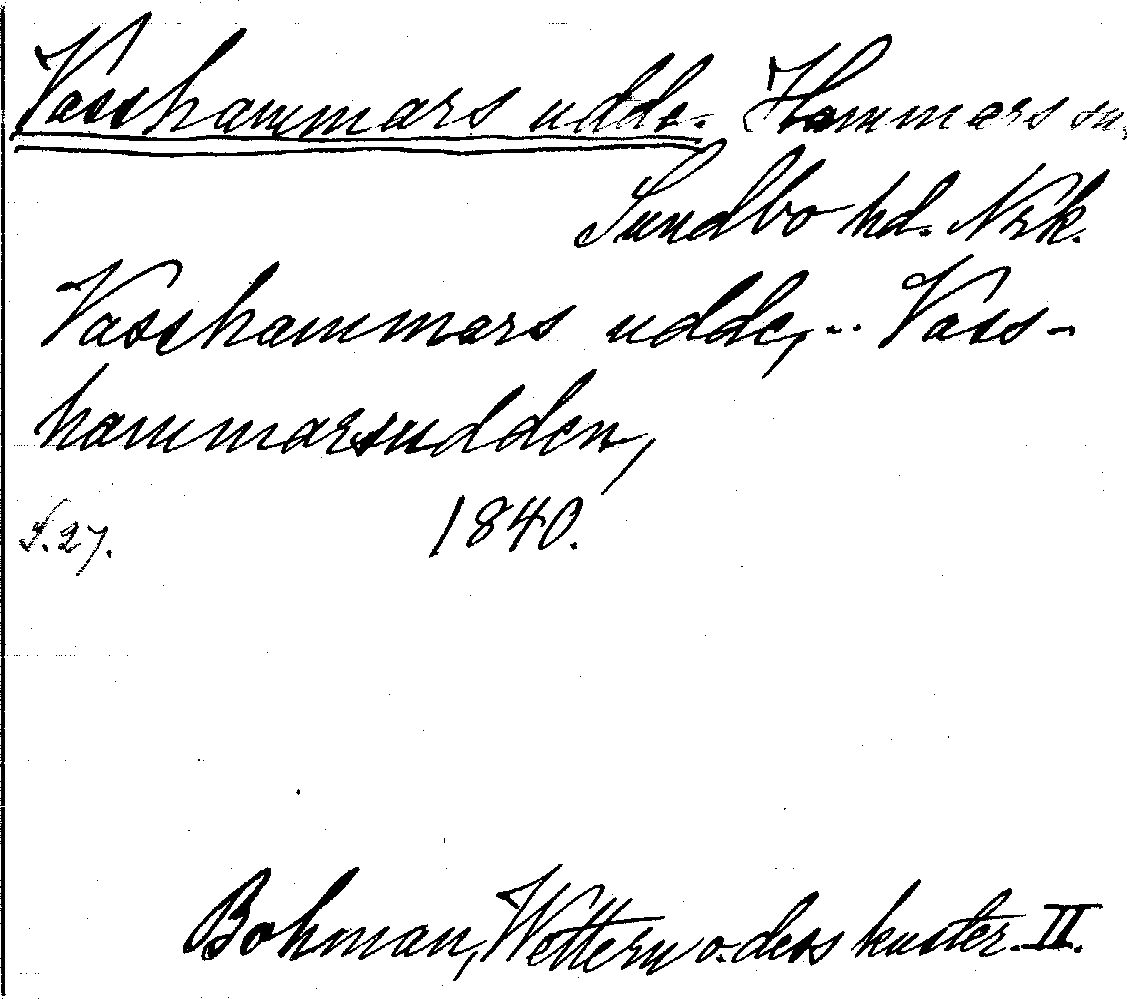 Vasshammars udde. Hammars sn,
Sundbo hd. Nrk.
Vasshammars udde, .. Vass-
hammarsudden,
S. 27. 1840.
Bohman, Wettern o. dess kuster. II.